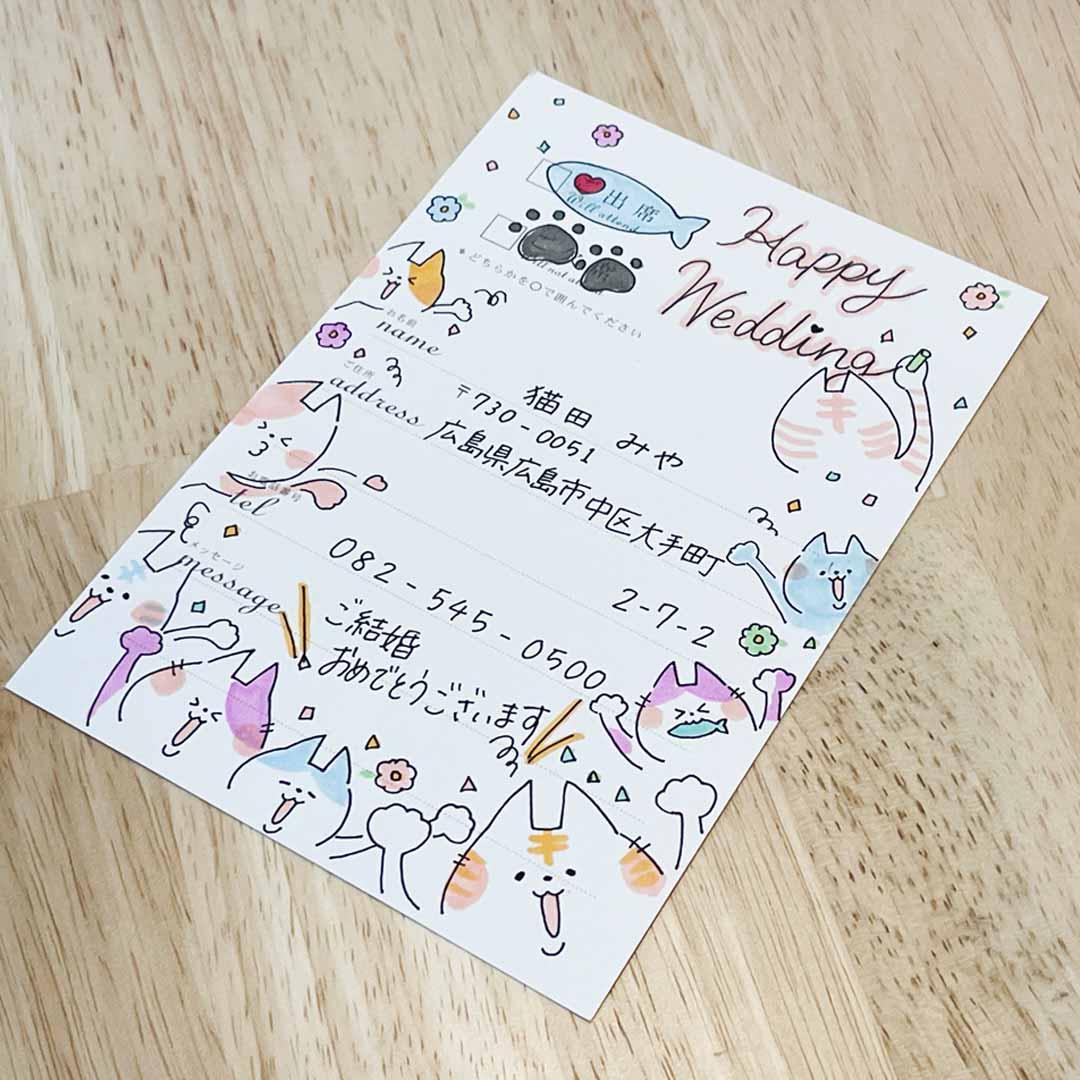 出席
Will attend
＊どちらかを〇で囲んでください
Happy
Wedding
お名前
name
猫田 みや
ご住所
address
〒730-0051
広島県広島市中区大手町
2-7-2
お電話番号
tel
082-545-0500
メッセージ
message
ご結婚
おめでとうございます